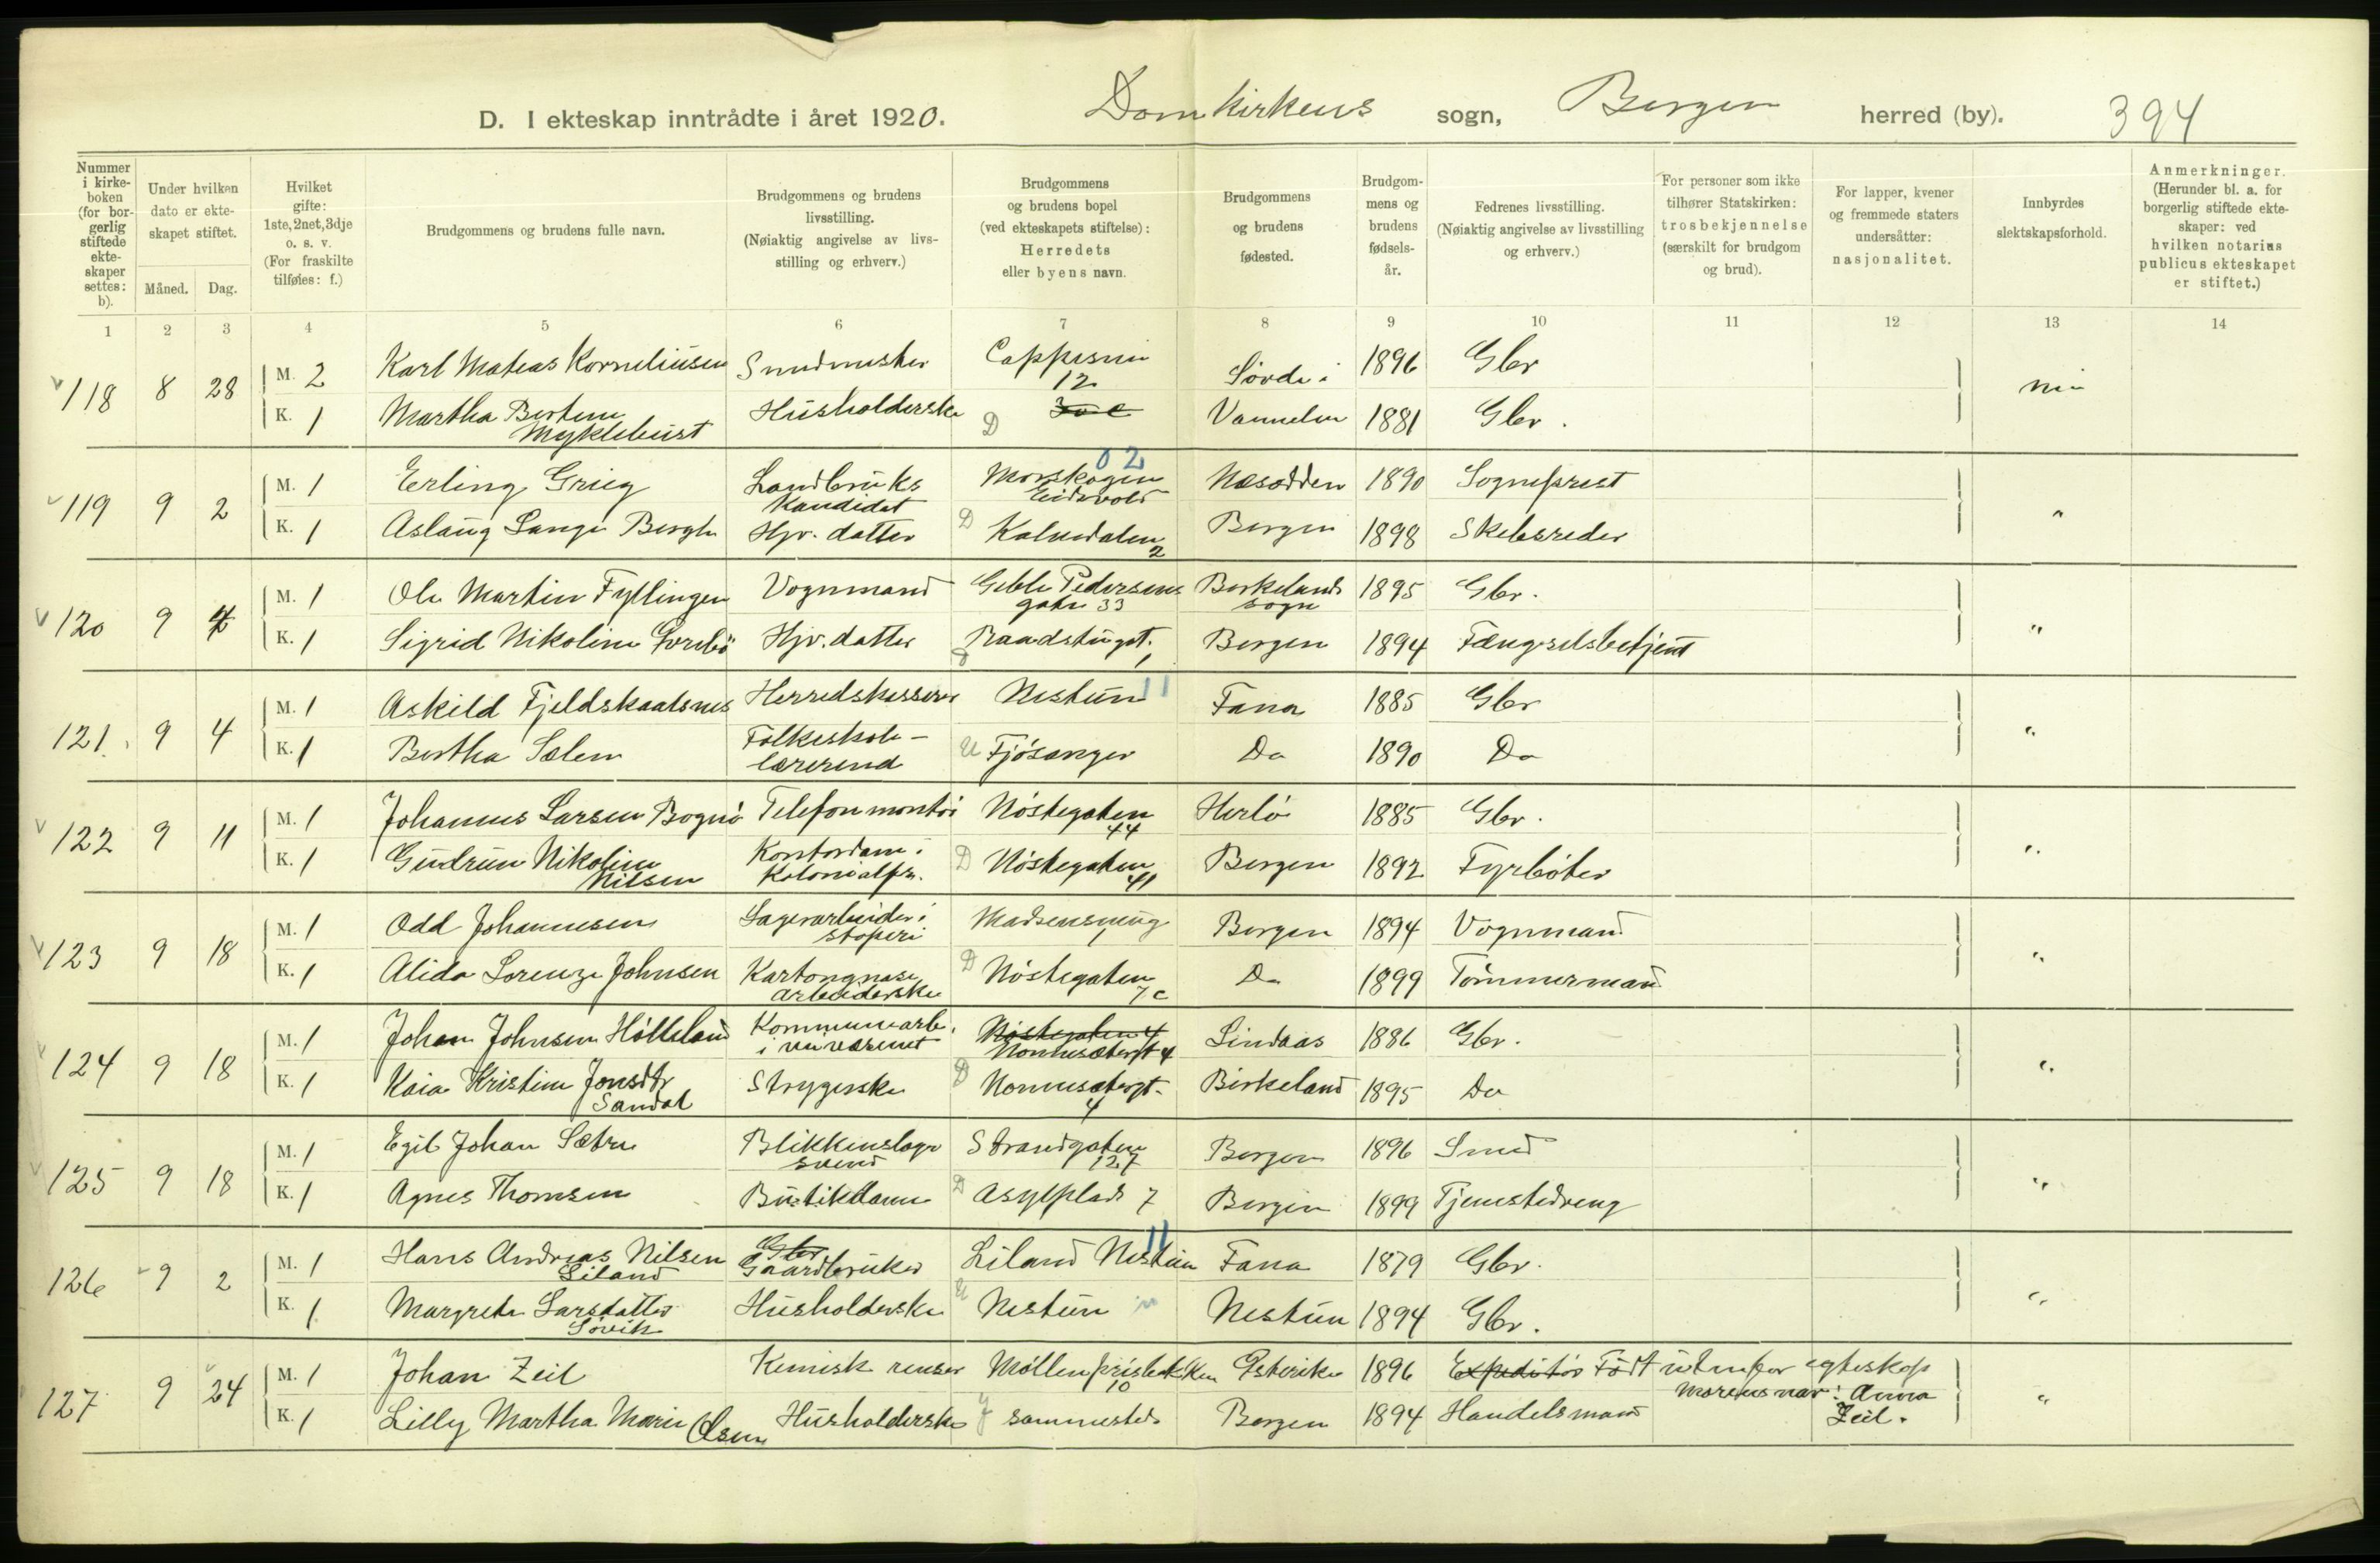 D. I ekteskap inntrådte i året 1920. Domkirkens sogn, Bergen herred (by). 394
Nummer i kirke-boken (for bor-gerlig stiftede ekte-skaper settes: b).
Under hvilken dato er ekte-skapet stiftet.
Måned. Dag.
Hvilket gifte: 1ste, 2net, 3dje o. s. v. (For fraskilte tilføies: f.)
Brudgommens og brudens fulle navn.
Brudgommens og brudens livsstilling. (Nøiaktig angivelse av livs-stilling og erhverv.)
Brudgommens og brudens bopel (ved ekteskapets stiftelse): Herredets eller byens navn.
Brudgommens og brudens fødested.
Brudgom-mens og brudens fødsels-år.
Fedrenes livsstilling. (Nøiaktig angivelse av livsstilling og erhverv.)
For personer som ikke tilhører Statskirken: trosbekjennelse (særskilt for brudgom og brud).
For lapper, kvener og fremmede staters undersåtter: nasjonalitet.
Innbyrdes slektskapsforhold.
Anmerkninger. (Herunder bl. a. for borgerlig stiftede ekte-skaper: ved hvilken notarius publicus ekteskapet er stiftet.)
1 2 3 4 5 6 7 8 9 10 11 12 13 14
118 8 28 M. 2 Karl Mateas Korneliusen 12 1896 Gbr
K. 1 Martha Myklebust Husholderske D 1881 Gbr.
119 9 2 M. 1 Erling Grieg Landbruks Kandidat 02 Morskogen Eidsvold Næsodden 1890 Sogneprest
K. 1 Aslaug Lange Bergh Hjv. datter D Kalvedalen 2 Bergen 1898 Skibsreder "
120 9 4 M. 1 Ole Martin Fyllingen Vognmand Geble Pedersens gate 33 Birkelands sogn 1895 Gbr.
K. 1 Sigrid Nikoline Hjv. datter Raadstugt. 1 Bergen 1894 Fængselsbetjent "
121 9 4 M. 1 Askild Fjeldskaalsnes Herredskasserer Nestun 11 Fana 1885 Gbr
K. 1 Bertha Sælen Folkeskole-lærerind U Fjösanger Do 1890 Do "
122 9 11 M. 1 Johannes Larsen Bognö Telefonmontör Nöstegaten 44 Herlö 1885 Gbr.
K. 1 Gudrun Nikoline Nilsen Kontordame i Kolonialfr. D Nöstegaten 41 Bergen 1892 Fyrböter "
123 9 18 M. 1 Odd Johannesen Lagerarbeider i stöperi Madsensmug 1 Bergen 1894 Vognmand
K. 1 Alida Lorenze Johnsen Kartongnase arbeiderske D Nöstegaten 7c Do 1899 Tömmermand "
124 9 18 M. 1 Johan Johnsen Hölleland Kommunearb. i renvæsenet Nöstegaten 4 Nonnesætergt 4 Lindaas 1886 Gbr.
K. 1 Kaia Kristine Jonsdtr Sandal Strygerske D Nonnesætergt. 4 Birkeland 1895 Do "
125 9 18 M. 1 Egil Johan Sætre Blikkenslager svend Strandgaten 127 Bergen 1896 Smed
K. 1 Agnes Thomsen Butikdame D Asylplads 7 Bergen 1899 Tjenestedreng "
126 9 2 M. 1 Hans Andreas Nilsen Liland Gbr Gaardbruker Liland Nestun 11 Fana 1879 Gbr.
K. 1 Margrete Larsdatter Sövik Husholderske U Nestun " Nestun 1894 Gbr. "
127 9 24 M. 1 Johan Zeil Kemisk renser Möllenprisbakken 10 Østerike 1896 Expeditör Födt utenfor egteskap Morens navn: Anna Zeil.
K. 1 Lilly Martha Marie Olsen Husholderske sammesteds Bergen 1894 Handelsmand "